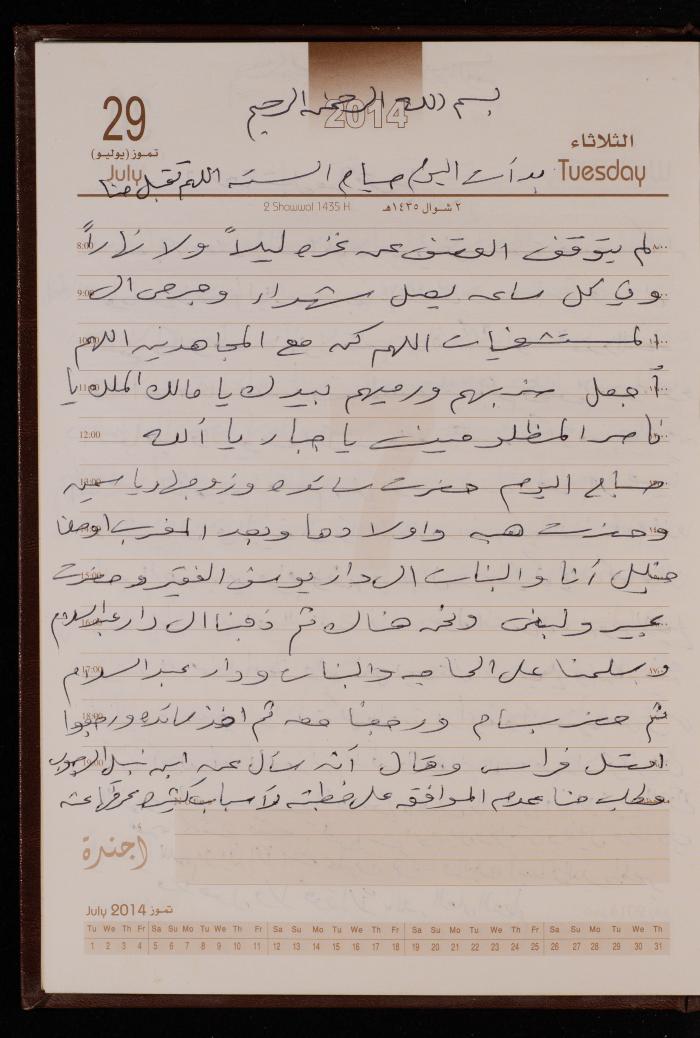 بسم الله الرحمن الرحيم
2014
29
تموز (يوليو)
July
الثلاثاء
Tuesday
بدأت اليوم صيام الستة اللهم تقبل منا
2 Shawwal 1435 H
٢ شوال ١٤٣٥هـ
8:00 لم يتوقف القصف عن غزه ليلاً ولا نهاراً
9:00 وفي كل ساعه يصل شهداء وجرحى الى
المستشفيات اللهم كن مع المجاهدين اللهم
11:00 أجعل ضربهم ورميهم بيدك يا مالك الملك يا
12:00 ناصر المظلومين يا جبار يا ألله
صباح اليوم حضرت سائده وزوجها وياسين
وحضرت هبه واولادها وبعد المغرب اوصلنا
15:00 خليل أنا والبنات الى دار يوسف الفقير وحضرت
16:00 عبير ولبنى ونحن هناك ثم ذهبنا الى دار عبدالسلام
17:00 وسلمنا على الحاجه والبنات ودار عبد السلام
18:00 ثم حضر بسام ورجعنا معه ثم اخذ سائده ورجعوا
19:00 اتصل فراس وقال أنه سأل عن ابن نبيل
وطلب منا عدم الموافقه على خطبته لأسباب كثيره عرفها عنه
أجندة
July 2014 تموز
Tu We Th Fr Sa Su Mo Tu We Th Fr Sa Su Mo Tu We Th Fr Sa Su Mo Tu We Th Fr Sa Su Mo Tu We Th
1 2 3 4 5 6 7 8 9 10 11 12 13 14 15 16 17 18 19 20 21 22 23 24 25 26 27 28 29 30 31